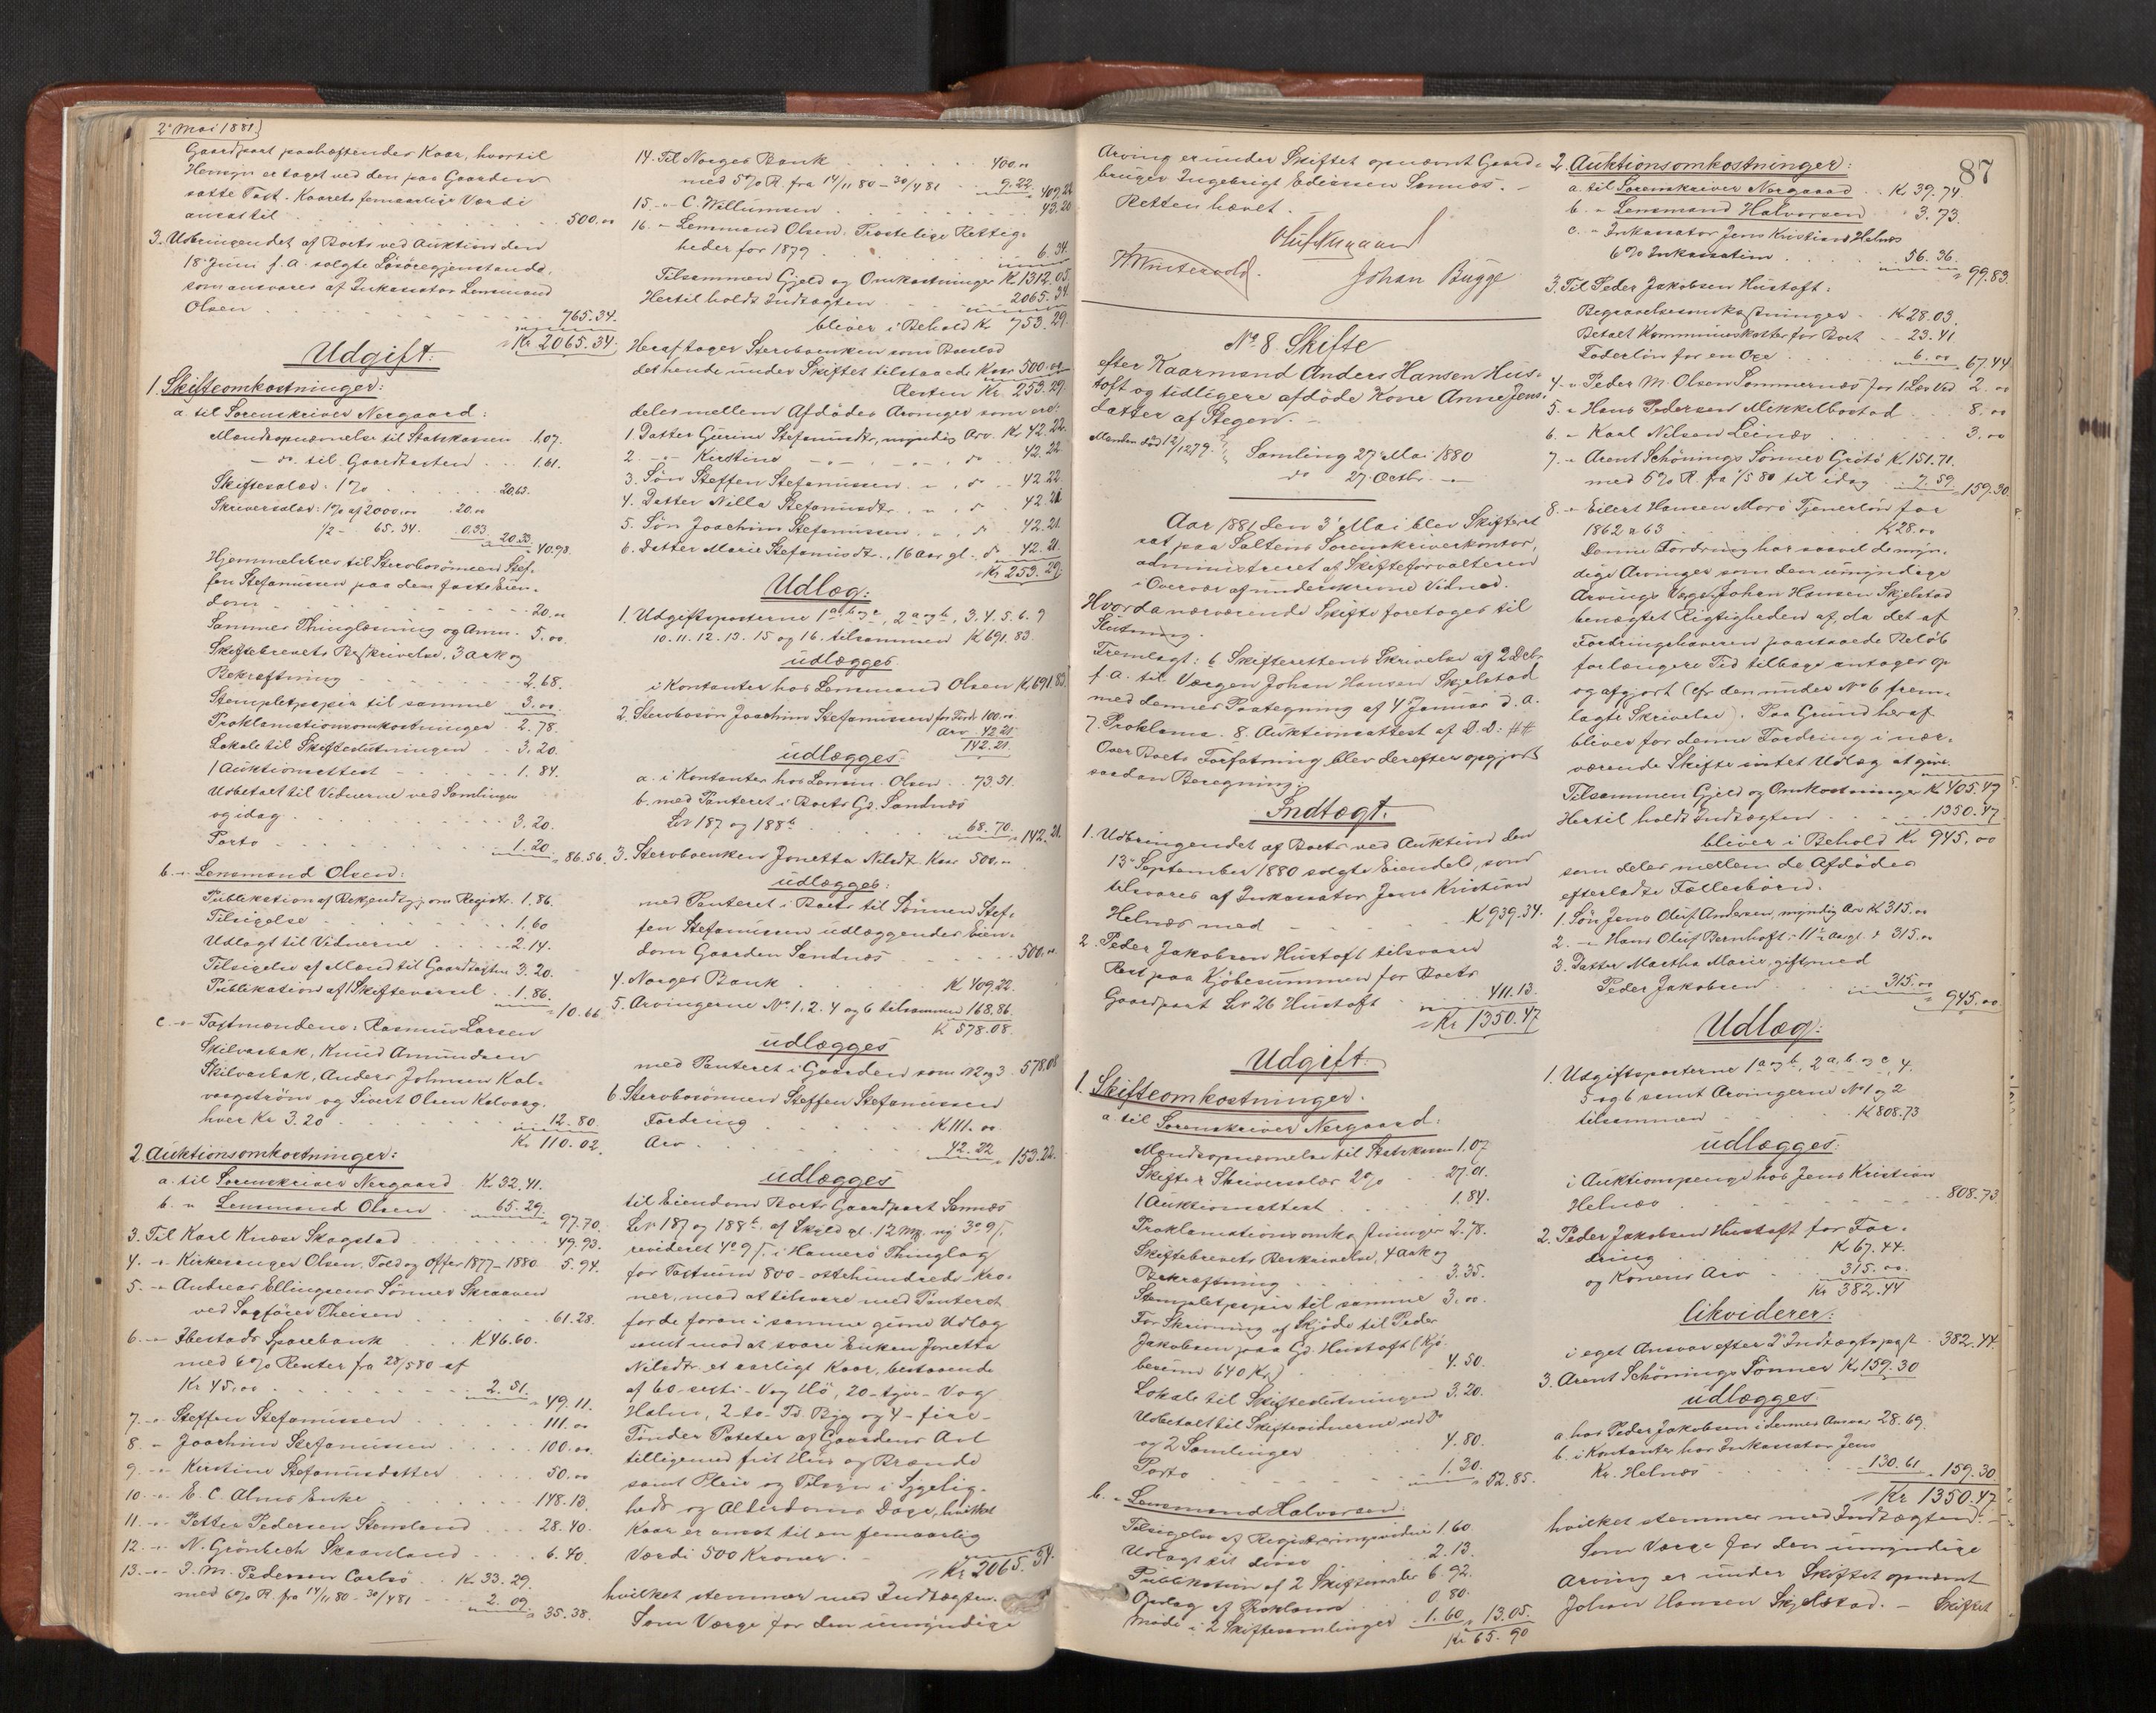 2' Mai 1881)
Gaardpart paahæftendes Kaar, hvortil
Hensyn er taget ved den paa Gaarden
satte Taxt. Kaarets femaarlige Værdi
ansat til 500.00
3. Udbringendet af Boets ved Auktion den
18' Juni f. A. solgte Løsøregjenstande,
som ansvares af Inkassator Lensmand
Olsen 765.34.
Kr 2065.34.
Udgift:
1. Skifteomkostninger:
a. til Sorenskriver Nergaard:
Mændsopnævnelse til Statskassen 1.07.
— do. til Gaardtaxten 1.61.
Skiftesalær 1% 20.63.
Skriversalær: 1% af 2000.00 20.00
1/2 - 65.34. 0.33. 20.33. 40.98.
Hjemmelsbrev til Sterbosønnen Stef-
fen Stefanussen paa den faste Eien-
dom 20.00
Sammes Thinglæsning og Anm. 5.00
Skiftebrevets Beskrivelse. 3 ark og
Bekræftning 2.68.
Stempletpapir til samme 3.00
Proklamationsomkostninger 2.78.
Lokale til Skifteslutningen 3.20.
1 Auktionsattest 1.84.
Udbetalt til Vidnerne ved Samlingen
og idag 3.20.
Porto 1.20. 86.56.
b. -- Lensmand Olsen:
Publikation af Bekjendtgj. om Registr. 1.86.
Tilsigelse 1.60
Udlagt til Vidnerne 2.14.
Tilsigelse af Mænd til Gaardtaxten 3.20.
Publikation af 1 Skiftevarsel 1.86. 10.66
c. -- Taxtmændene: Rasmus Larsen
Skilvasbak, Knud Amundsen
Skilvasbak, Anders Johnsen Kal-
vaagstrøm og Sivert Olsen Kalvaag.
hver Kr 3.20 12.80.
Kr 110.02.
2. Auktionsomkostninger:
a. til Sorenskriver Nergaard K 32.41.
b. " Lensmand Olsen 65.29. 97.70.
3. Til Karl Knøse Skogstad 49.93.
4. -- Kirkesanger Olsen, Told og Offer 1877-1880 5.94.
5. -- Andreas Ellingsens Sønner Skraaven
ved Sagfører Theisen 61.28.
6. -- Ibestads Sparebank K 46.60.
med 6% Renter fra 28/5 80 af
Kr 45.00 2.51. 49.11.
7. -- Steffen Stefanussen 111.00
8. " Joachim Stefanussen 100.00.
9. -- Kirstine Stefanusdatter 50.00
10. -- E. C. Alms Enke 148.13.
11. -- Petter Pedersen Stensland 28.40.
12. -- N. Grønbech Skaanland 6.40.
13. -- J. M. Pedersen Carlsø Kr. 33.29.
med 6% R. fra 14/11 80 - 30/4 81 2.09. 35.38.
14. Til Norges Bank 400.00
med 5% R. fra 14/11 80 - 30/4 81 9.22. 409.22
15. -- C. Willumsen 43.20
16. -- Lensmand Olsen. Prostelige Rettig-
heder for 1879 6.34.
Tilsammen Gjeld og Omkostninger Kr 1312.05.
Hertil holdt Indtægten 2065.34
bliver i Behold Kr 753.29.
Heraf tager Sterboenken som Boeslod
det hende under Skiftet tilstaaede Kaar 500.00
Resten Kr. 253.29.
deles mellem Afdødes Arvinger som ere:
1. Datter Gurine Stefanusdtr, myndig Arv. Kr 42.22.
2. -- Kirstine -- -- do 42.22.
3. Søn Steffen Stefanussen " do 42.22
4. Datter Nilla Stefanusdtr " do 42.21
5. Søn Joachim Stefanussen " do 42.21.
6. Datter Marie Stefanusdtr., 16 Aar gl. do 42.21.
Kr 253.29.
Udlæg:
1. Udgiftsposterne 1 a, b og c, 2 a og b, 3. 4. 5. 6. 9
10. 11. 12. 13. 15 og 16. tilsammen K 691.83.
udlægges
i Kontanter hos Lensmand Olsen K 691.83.
2. Sterbosøn Joachim Stefanussen for Fordr. 100.00
Arv 42.21
142.21.
udlægges
a. i Kontanter hos Lensm. Olsen 73.51.
b. med Panteret i Boets Gd. Sandnæs
Lnr 187 og 188 b 68.70. 142.21.
3. Sterboenken Jonetta Nilsdtr. Kaar 500.00
udlægges:
med Panteret i Boets til Sønnen Stef-
fen Stefanussen udlæggendes Eien-
dom Gaarden Sandnæs 500.00.
4. Norges Bank K 409.22.
5. Arvingerne No 1. 2. 4 og 6 tilsammen 168.86.
K 578.08.
udlægges
med Panteret i Gaarden som No 2 og 3 578.08
6. Sterbosønnen Steffen Stefanussen
Fordring K 111.00
Arv 42.22 153.22.
udlægges
til Eiendom Boets Gaardpart Sannæs
Lnr 187 og 188 b. af Skyld gl. 12 Mk. ny 3 o 9 /.
revideret 4 o 9 /. i Hamerø Thinglag
for Taxtsum 800 - ottehundrede - Kro-
ner, mod at tilsvare med Panteret
for de foran i samme givne Udlæg
samt mod at svare Enken Jonetta
Nilsdtr. et aarligt Kaar, bestaaende
af 60 - sexti - Vog Hø, 20 - tyve - Vog
Halm, 2 - to - Td. Byg og 4 - fire -
Tønder Poteter af Gaardens Avl
tilligemed frit Hus og Brænde
samt Pleie og Tilsyn i Sygelig-
heds og Alderdoms Dage, hvilket
Kaar er ansat til en femaarlig
Værdi 500 Kroner. -
Kr 2065.34.
hvilket stemmer med Indtægten.
Som Værge for den umyndige
87
Arving er under Skiftet opnævnt Gaard-
bruger Ingebrigt Ediassen Sannæs. -
Retten hævet.
Johan Bugge
No 8 Skifte
efter Kaarmand Anders Hansen Hus-
toft og tidligere afdøde Kone Anne Jens-
datter af Stegen. -
Manden død 12/12 79.
Samling 27' Mai 1880
do 27. Octbr. --
Aar 1881 den 3' Mai blev Skifteret
sat paa Saltens Sorenskriverkontor,
administreret af Skifteforvalteren
i Overvær af underskrevne Vidner.
Hvorda nærværende Skifte foretoges til
Slutning.
Fremlagt: 6. Skifterettens Skrivelse af 2 Decbr
f. A. til Værgen Johan Hansen Skjelstad
med dennes Paategning af 4' Januar d. A.
7. Proklama. 8. Auktionsattest af D. D: ##
Over Boets Forfatning blev derefter opgjort
saadan Beregning:
Indtægt:
1. Udbringendet af Boets ved Auktion den
13' September 1880 solgte Eiendele, som
tilsvares af Inkassator Jens Kristian
Helnæs med K 939.34.
2. Peder Jakobsen Hustoft tilsvarer
Rest paa Kjøbesummen for Boets
Gaardpart Lnr 26 Hustoft 411.13.
Kr 1350.47
Udgift:
1. Skifteomkostninger.
a. til Sorenskriver Nergaard:
Mændsopnævnelse til Statskassen 1.07
Skifte & Skriversalær 2% 27.01.
1 Auktionsattest 1.84.
Proklamationsomkostninger 2.78.
Skiftebrevets Beskrivelse, 4 Ark og
Bekræftning 3.35.
Stempletpapir til samme 3.00.
For Skrivning af Skjøde til Peder
Jakobsen paa Gd. Hustoft (Kjø-
besum 640 Kr.) 4.50.
Lokale til Skifteslutningen 3.20.
Udbetalt til Skiftevidnerne ved Do
og 2 Samlinger 4.80.
Porto 1.30. 52.85.
b. " Lensmand Halvorsen:
Tilsigelse af Registreringsvidner 1.60.
Udlagt til disse 2.13.
Publikation af 2 Skiftevarsler 6.92.
Opslag af Proklama 0.80.
Møde i 2 Skiftesamlinger 1.60 13.05.
Kr 65.90
2. Auktionsomkostninger:
a. til Sorenskriver Nergaard Kr 39.74.
b. " Lensmand Halvorsen 3.73.
c. " Inkassator Jens Kristian Helnæs
6% Inkassation 56.36. 99.83.
3. Til Peder Jakobsen Hustoft:
Begravelsesomkostninger K 28.03.
Betalt Kommuneskatter for Boet 23.41.
Foderløn for en Oxe 6.00 67.44
4. " Peder M. Olsen Sommernæs for 1 Læs Ved 2.00
5. " Hans Pedersen Mikkelbostad 8.00
6. " Karl Nilsen Leinæs 3.00
7. " Arent Schønings Sønner Grøtø K 151.71.
med 5% R. fra 1/5 80 til idag 7.59. 159.30.
8. " Eilert Hansen Morø Tjenerløn for
1862 & 63 K 28.00
Denne Fordring har saavel de myn-
dige Arvinger som den umyndige
Arvings Værge, Johan Hansen Skjelstad
benægtet Rigtigheden af, da det af
Fordringshaveren paastaaede Beløb
for længere Tid tilbage antages op
og afgjort (cfr den under No 6 frem-
lagte Skrivelse). Paa Grund heraf
bliver for denne Fordring i nær-
værende Skifte intet Udlæg at give.
Tilsammen Gjeld og Omkostninger K 405.47
Hertil holdt Indtægten 1350.47
bliver i Behold Kr 945.00
som deles mellem de Afdødes
efterladte Fællesbørn:
1. Søn Jens Oluf Andersen, myndig Arv Kr 315.00
2. -- Hans Oluf Bernhoft: 11 1/2 Aar gl. d. 315.00
3. Datter Martha Marie, gift med
Peder Jakobsen 315.00 945.00
Udlæg:
1. Udgiftsposterne 1 a og b, 2 a, b og c, 4.
5 og 6 samt Arvingerne No 1 og 2
tilsammen K 808.73
udlægges:
i Auktionspenge hos Jens Kristian
Helnæs 808.73
2. Peder Jakobsen Hustoft for For-
dring K 67.44.
og Konens Arv 315.00.
Kr 382.44
likviderer:
i eget Ansvar efter 2' Indtægtspost 382.44.
3. Arent Schønings Sønner Kr 159.30
udlægges
a. hos Peder Jakobsen i dennes Ansvar 28.69.
b. i Kontanter hos Inkassator Jens
Kr. Helnæs 130.61 159.30
Kr 1350.47
hvilket stemmer med Indtægten. -
Som Værge for den umyndige
Arving er under Skiftet opnævnt
Johan Hansen Skjelstad. - Skiftet